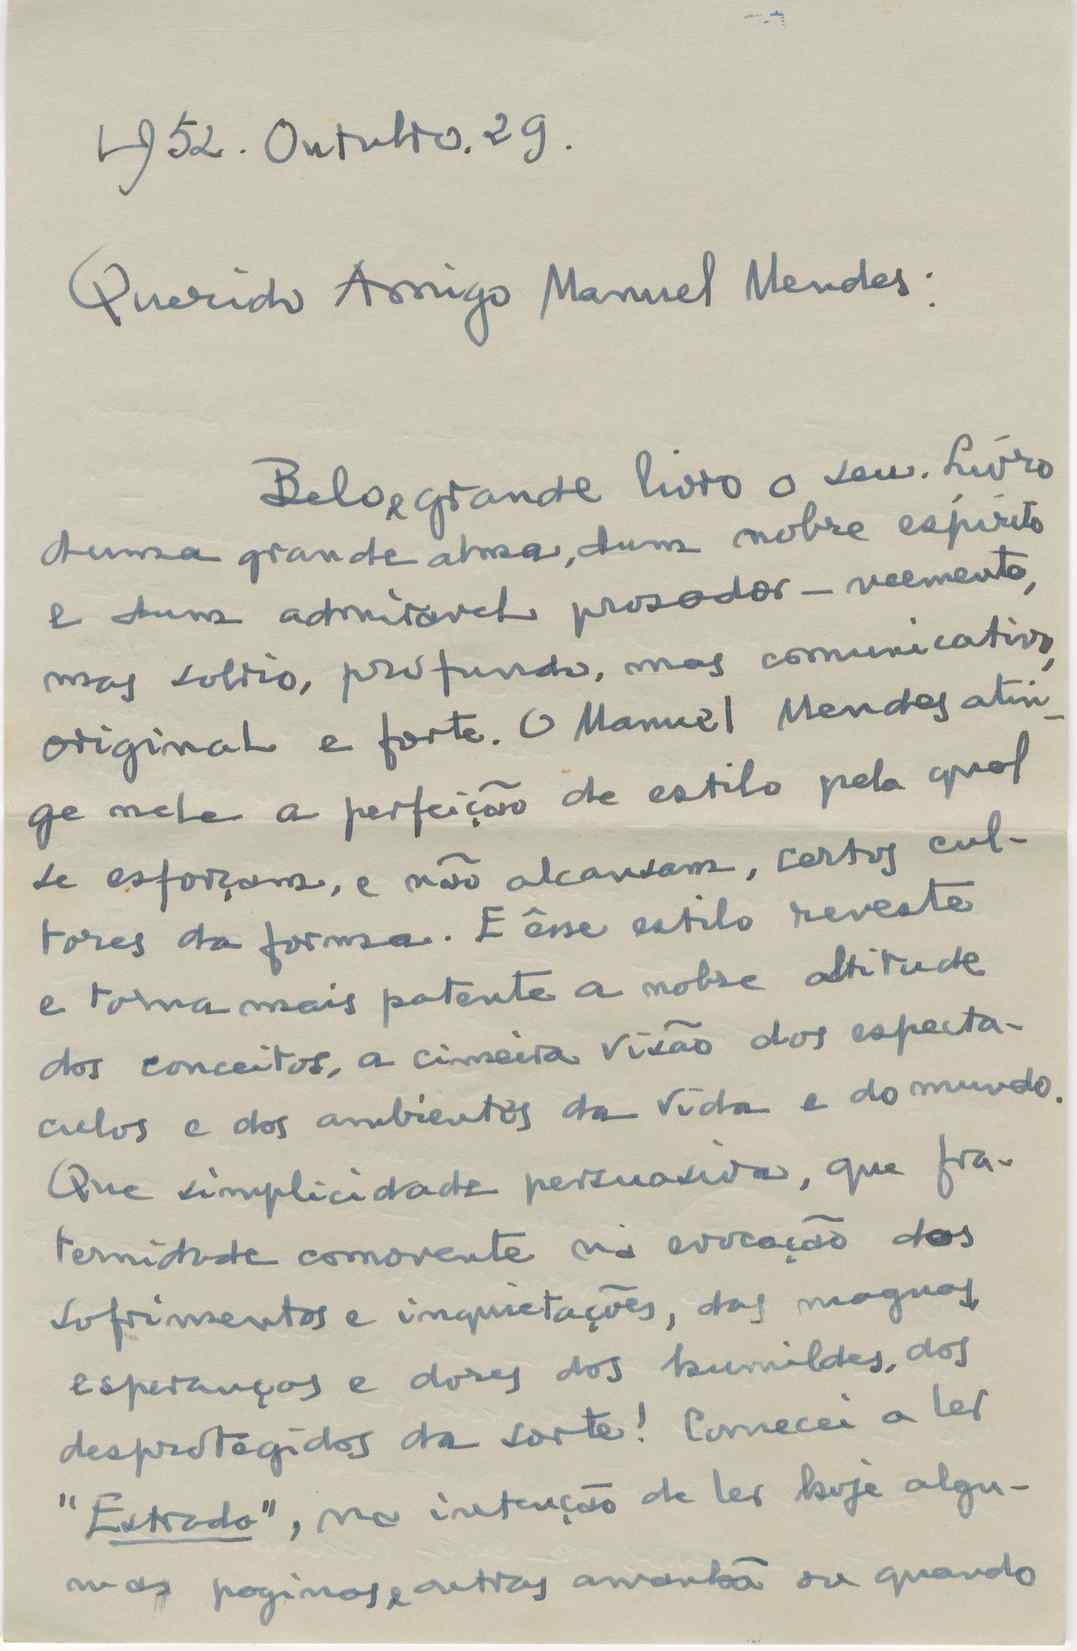 1952. Outubro. 29.
Querido Amigo Manuel Mendes:
Belo e grande livro o seu. Livro
duma grande alma, dum nobre espírito
e dum admiravel prosador – veemente,
mas sobrio, profundo, mas comunicativo,
original e forte. O Manuel Mendes atin-
ge nele a perfeição de estilo pela qual
se esforçam, e não alcansam, certos cul-
tores da forma. E êsse estilo reveste
e torna mais patente a nobre altitude
dos conceitos, a cimeira visão dos especta-
culos e dos ambientes da vida e do mundo.
Que simplicidade persuasiva, que fra-
ternidade comovente na evocação dos
sofrimentos e inquietações, das magoas,
esperanças e dores dos humildes, dos
desprotegidos da sorte! Comecei a ler
"Estrada", na intenção de ler hoje algu-
mas paginas e outras amanhã ou quando